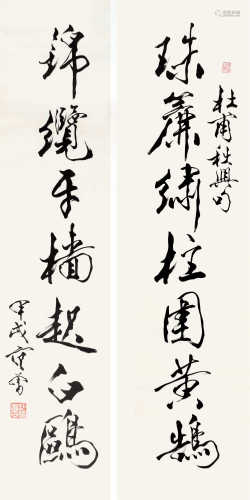 珠簾繡柱圍黃鵠
杜甫秋興句
錦纜牙檣起白鷗
甲戌 范曾